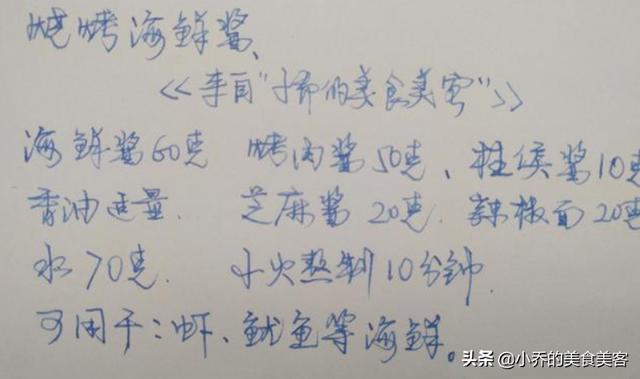 烧烤海鲜酱、
<<来自"小乔的美食美客">>
海鲜酱60克 烤肉酱50克、柱侯酱10克
香油适量. 芝麻酱20克. 辣椒面20克
水70克. 小火熬制10分钟.
可用于:虾、鱿鱼等海鲜。
头条@小乔的美食美客